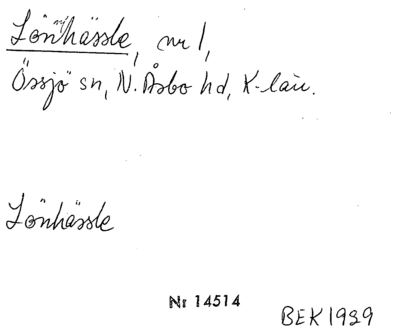 Lönhässle, nr 1,
Össjö sn, N. Åsbo hd, K-län.
Lönhässle
Nr 14514
BEK 1929